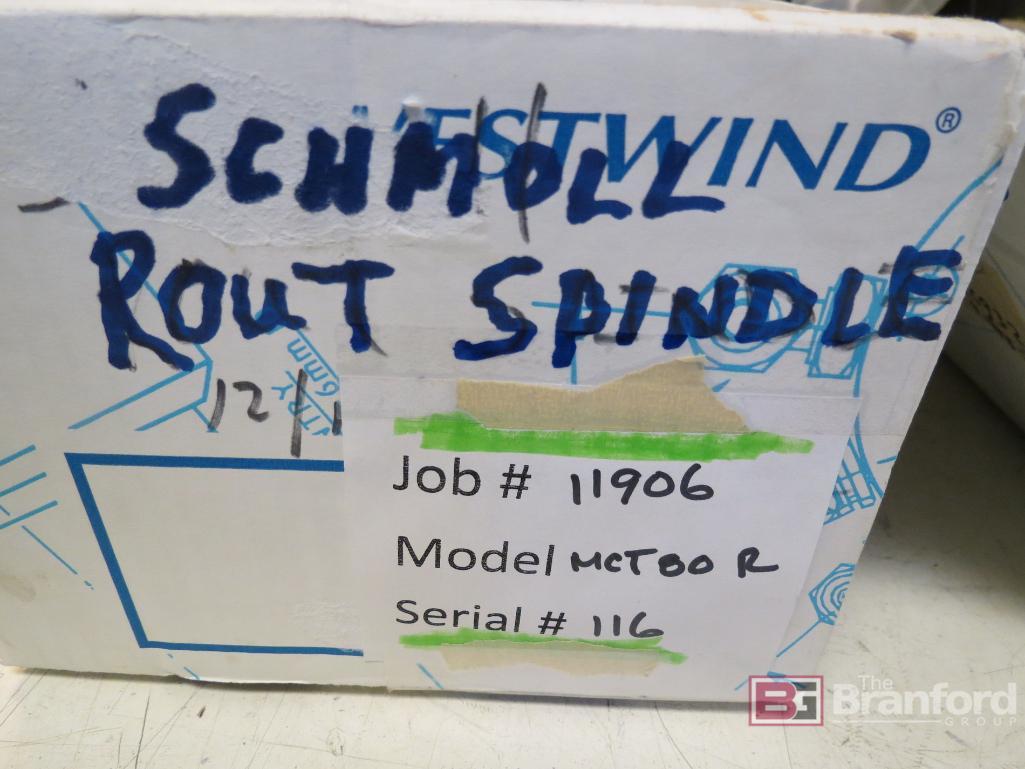 WESTWIND®
SCHMOLL
ROUT SPINDLE
6mm
12/1
Job # 11906
Model MCT80 R
Serial # 116
The
Branford
GROUP